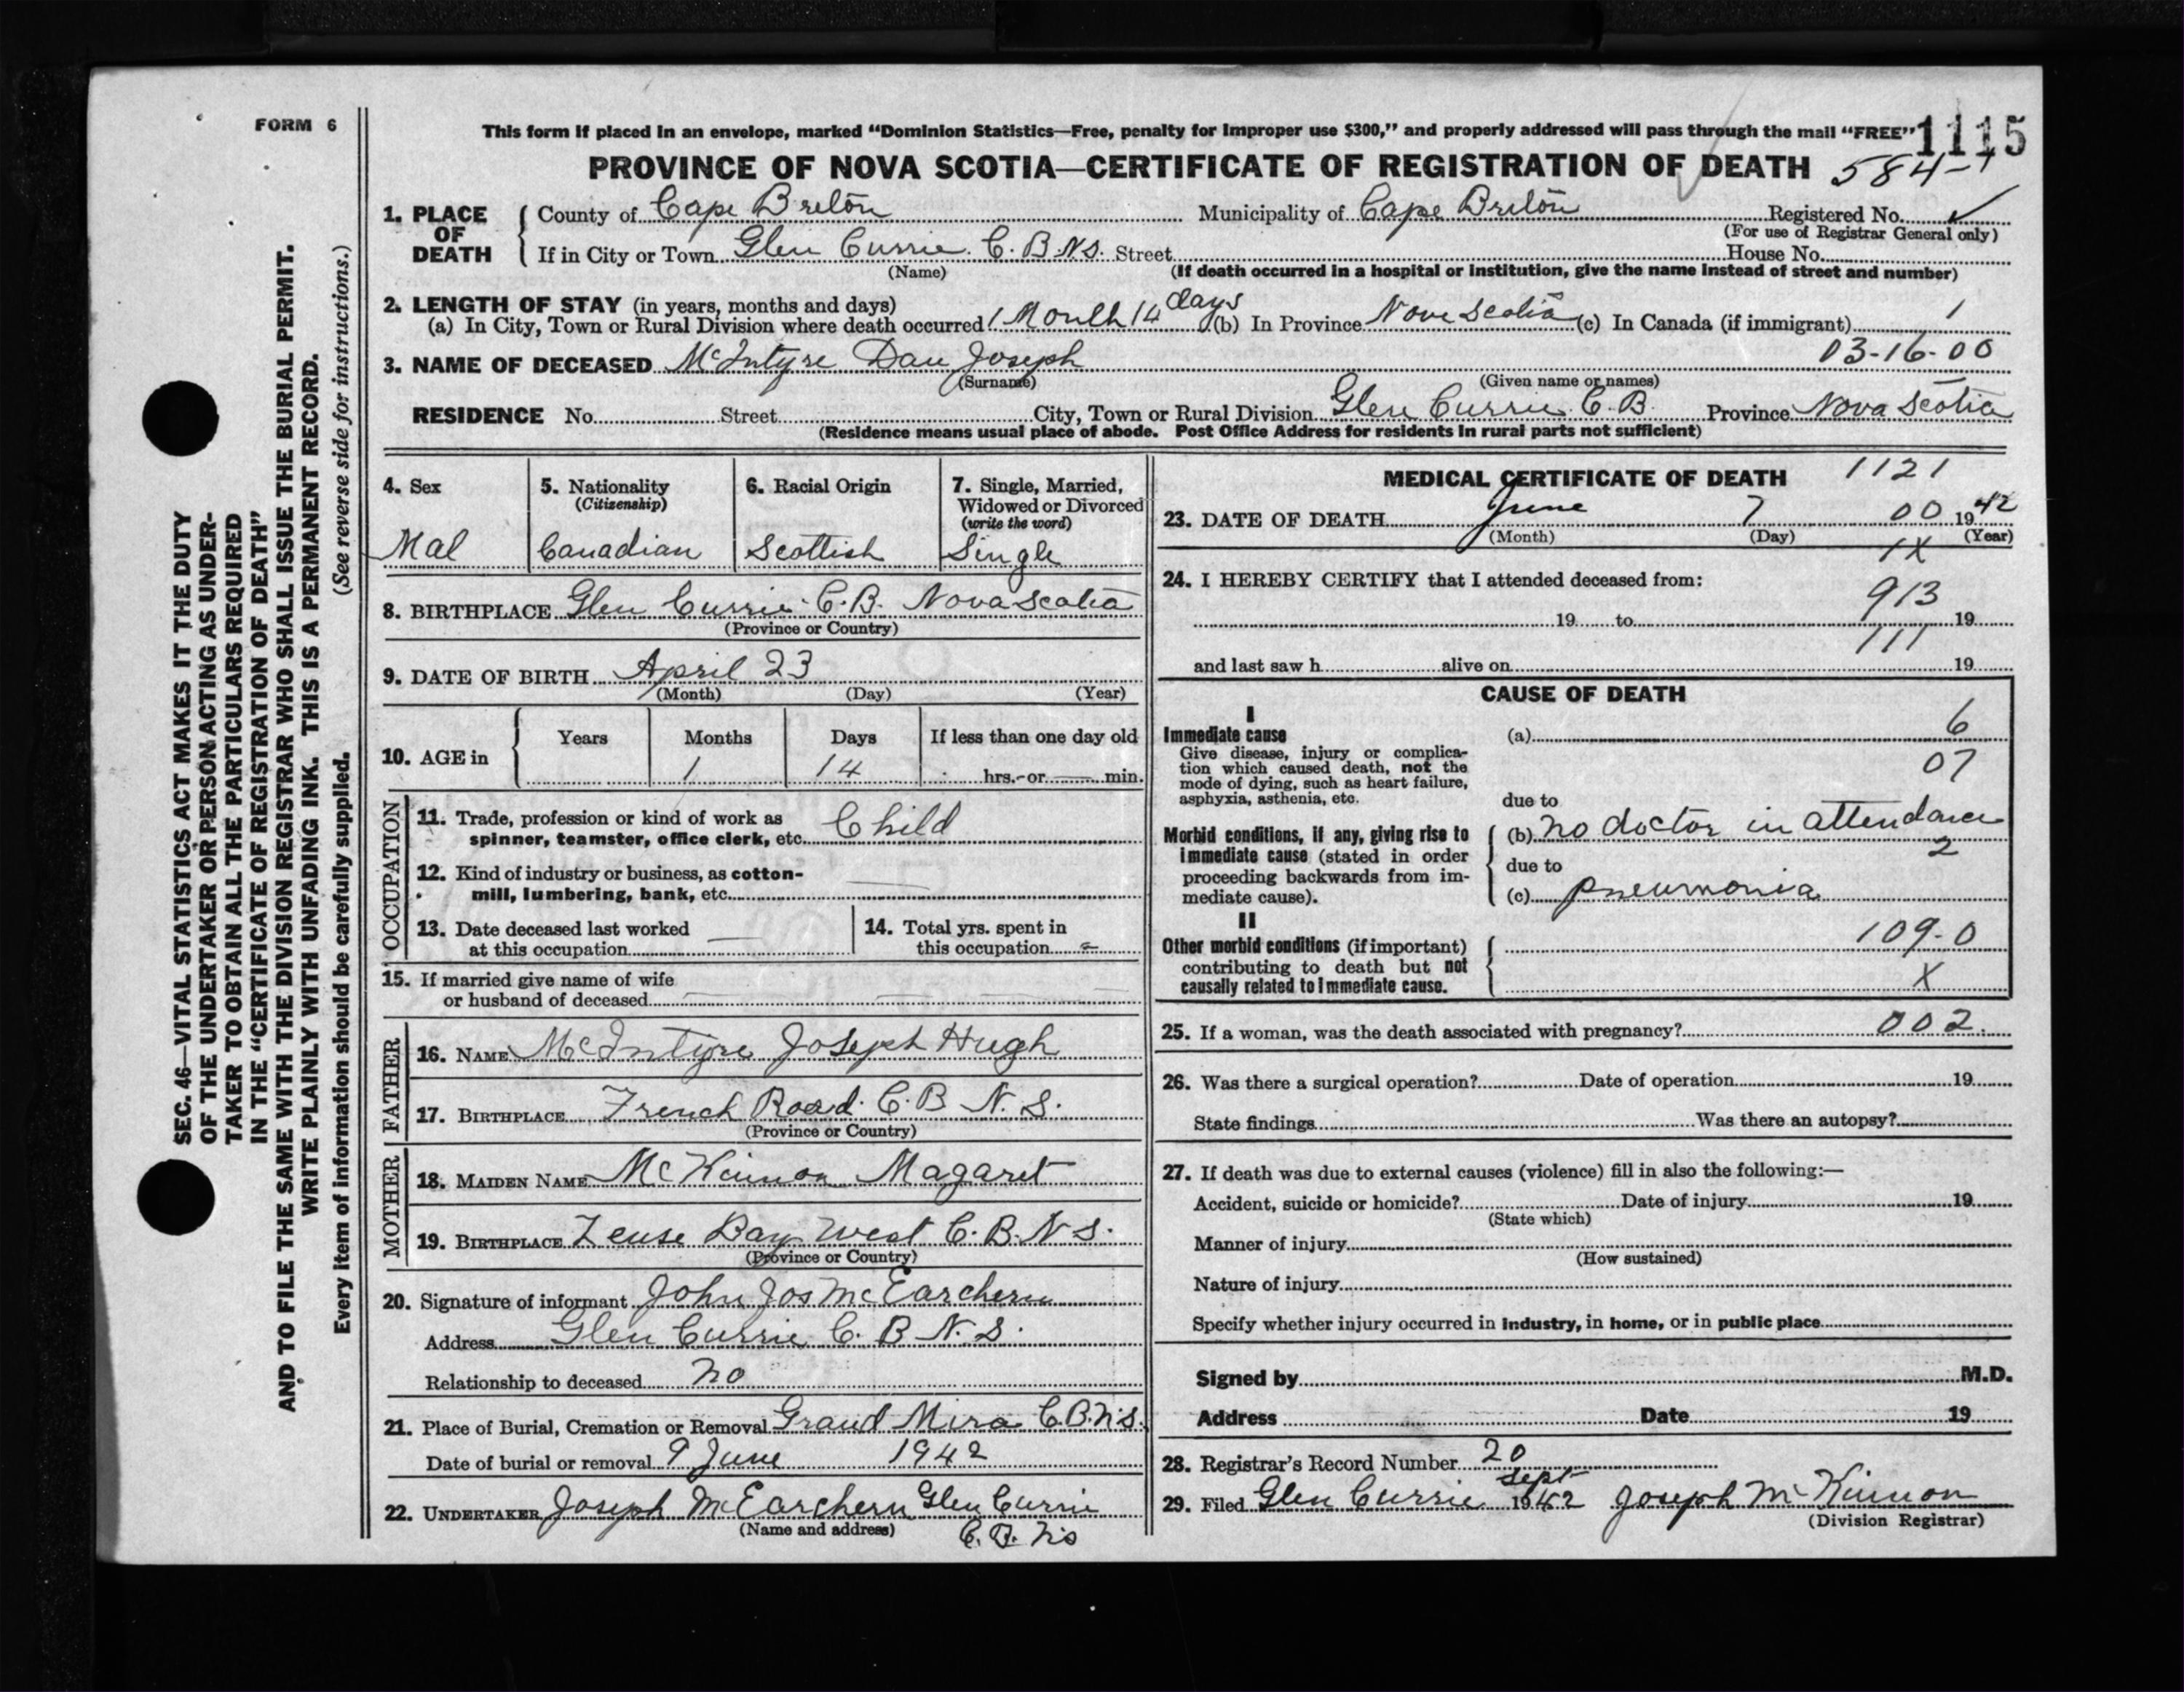 FORM 6
This form if placed in an envelope, marked “Dominion Statistics—Free, penalty for improper use $300,” and properly addressed will pass through the mail “FREE” 1115
PROVINCE OF NOVA SCOTIA—CERTIFICATE OF REGISTRATION OF DEATH 584-1
1. PLACE OF DEATH County of Cape Breton Municipality of Cape Breton Registered No. ✓
(For use of Registrar General only)
If in City or Town Glen Currie. C. B. N.S. Street House No.
(Name) (If death occurred in a hospital or institution, give the name instead of street and number)
2. LENGTH OF STAY (in years, months and days)
(a) In City, Town or Rural Division where death occurred 1 Month 14 days (b) In Province Nova Scotia (c) In Canada (if immigrant) 1
03-16-00
3. NAME OF DECEASED McIntyre Dan Joseph
(Surname) (Given name or names)
RESIDENCE No. Street City, Town or Rural Division Glen Currie C. B. Province Nova Scotia
(Residence means usual place of abode. Post Office Address for residents in rural parts not sufficient)
4. Sex 5. Nationality 6. Racial Origin 7. Single, Married,
(Citizenship) Widowed or Divorced
(write the word)
Mal Canadian Scottish Single
8. BIRTHPLACE Glen Currie C.B. Nova Scotia
(Province or Country)
9. DATE OF BIRTH April 23
(Month) (Day) (Year)
10. AGE in Years Months Days If less than one day old
1 14 hrs. or min.
OCCUPATION
11. Trade, profession or kind of work as
spinner, teamster, office clerk, etc. Child
12. Kind of industry or business, as cotton-
mill, lumbering, bank, etc.
13. Date deceased last worked 14. Total yrs. spent in
at this occupation this occupation
15. If married give name of wife
or husband of deceased
FATHER
16. NAME McIntyre Joseph Hugh
17. BIRTHPLACE French Road C.B N. S.
(Province or Country)
MOTHER
18. MAIDEN NAME McKinnon Magaret
19. BIRTHPLACE Bay West C. B. N S.
(Province or Country)
20. Signature of informant John Jos McEarchern
Address Glen Currie C. B N. S.
Relationship to deceased no
21. Place of Burial, Cremation or Removal Grand Mira C.B.N.S.
Date of burial or removal 9 June 1942
22. UNDERTAKER Joseph McEarchern Glen Currie
(Name and address) C. B. NS
MEDICAL CERTIFICATE OF DEATH 1121
23. DATE OF DEATH June 7 00 1942
(Month) (Day) (Year)
1X
24. I HEREBY CERTIFY that I attended deceased from:
913
19 to 19
111
and last saw h alive on 19
CAUSE OF DEATH
I
Immediate cause (a) 6
Give disease, injury or complica-
tion which caused death, not the 07
mode of dying, such as heart failure,
asphyxia, asthenia, etc. due to
Morbid conditions, if any, giving rise to (b) no doctor in attendance
immediate cause (stated in order 2
proceeding backwards from im- due to
mediate cause). (c) pneumonia
II
Other morbid conditions (if important) 109-0
contributing to death but not
causally related to immediate cause. X
25. If a woman, was the death associated with pregnancy? 002.
26. Was there a surgical operation? Date of operation 19
State findings Was there an autopsy?
27. If death was due to external causes (violence) fill in also the following:—
Accident, suicide or homicide? Date of injury 19
(State which)
Manner of injury
(How sustained)
Nature of injury
Specify whether injury occurred in industry, in home, or in public place
Signed by M.D.
Address Date 19
28. Registrar's Record Number 20
29. Filed Glen Currie Sept 1942 Joseph McKinnon
(Division Registrar)
SEC. 46—VITAL STATISTICS ACT MAKES IT THE DUTY
OF THE UNDERTAKER OR PERSON ACTING AS UNDER-
TAKER TO OBTAIN ALL THE PARTICULARS REQUIRED
IN THE “CERTIFICATE OF REGISTRATION OF DEATH”
AND TO FILE THE SAME WITH THE DIVISION REGISTRAR WHO SHALL ISSUE THE BURIAL PERMIT.
WRITE PLAINLY WITH UNFADING INK. THIS IS A PERMANENT RECORD.
Every item of information should be carefully supplied. (See reverse side for instructions.)